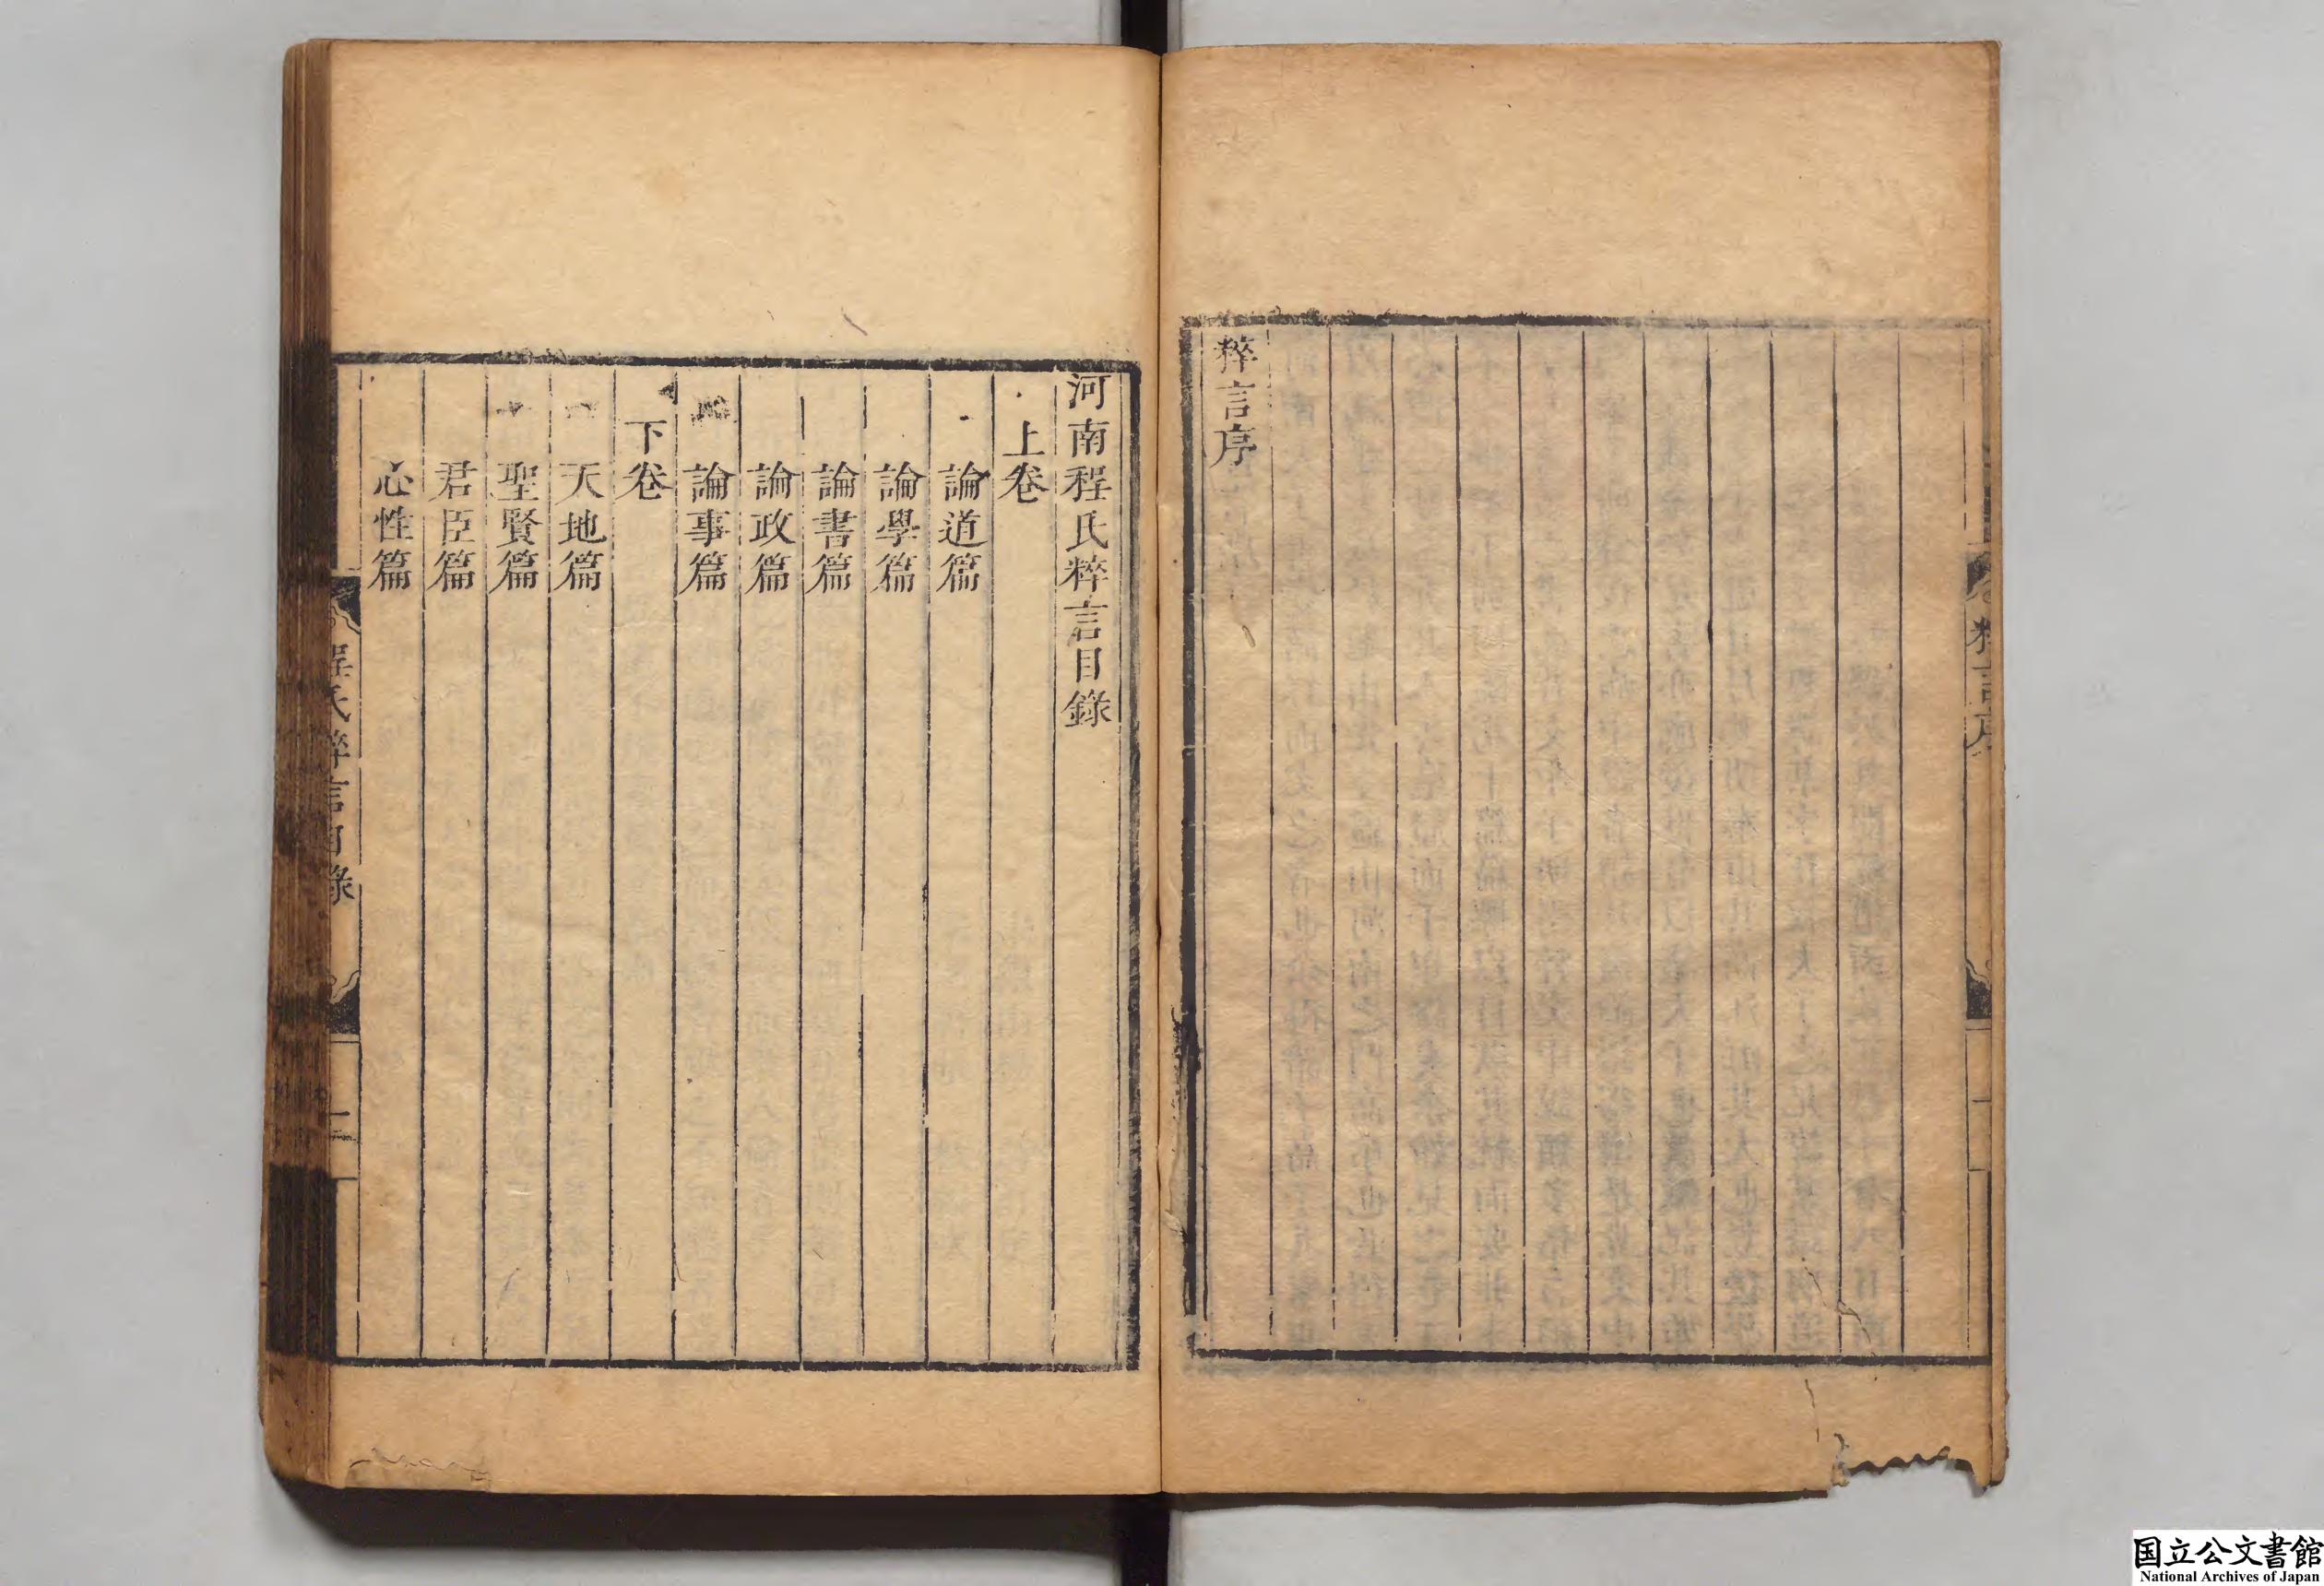 粹言序
一
粹言序
河南程氏粹言目錄
上卷
論道篇
論學篇
論書篇
論政篇
論事篇
下卷
天地篇
聖賢篇
君臣篇
心性篇
程氏粹言目錄
国立公文書館
National Archives of Japan